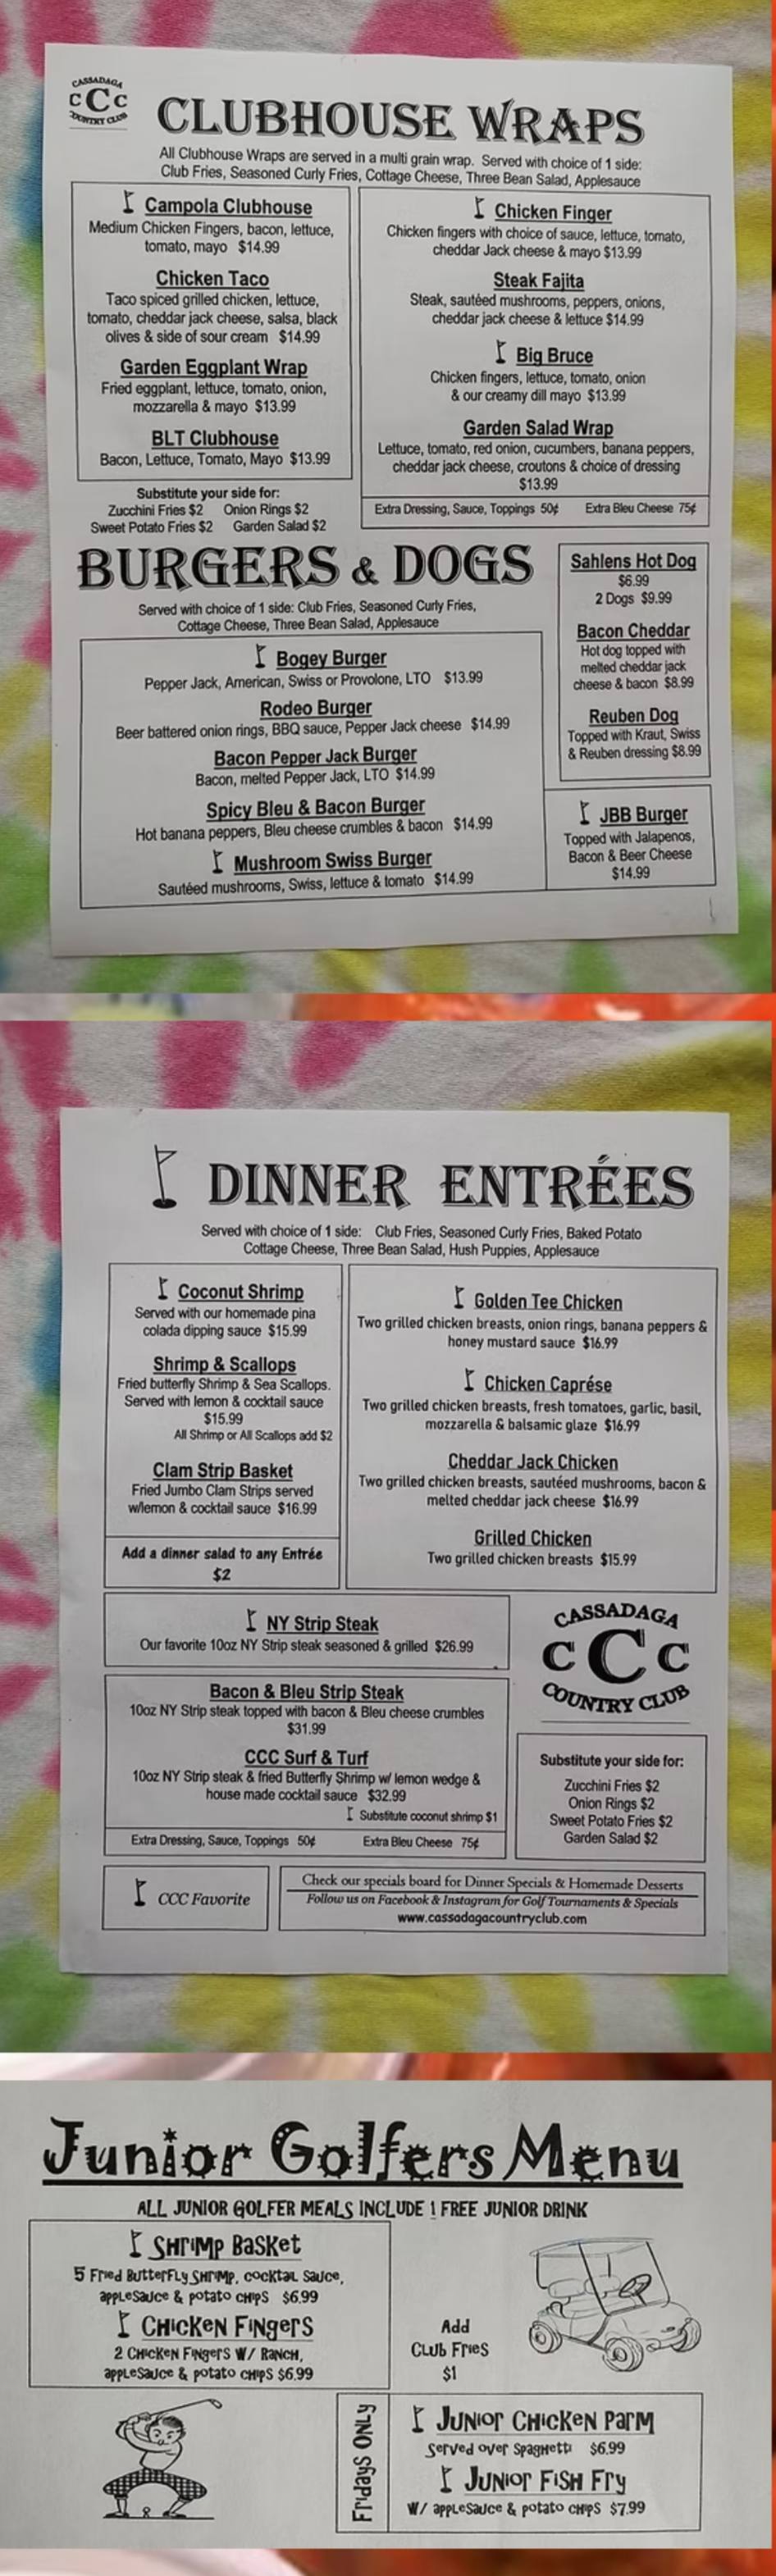 CASSADAGA
CCC
COUNTRY CLUB
CLUBHOUSE WRAPS
All Clubhouse Wraps are served in a multi grain wrap. Served with choice of 1 side:
Club Fries, Seasoned Curly Fries, Cottage Cheese, Three Bean Salad, Applesauce
Campola Clubhouse
Medium Chicken Fingers, bacon, lettuce,
tomato, mayo $14.99
Chicken Taco
Taco spiced grilled chicken, lettuce,
tomato, cheddar jack cheese, salsa, black
olives & side of sour cream $14.99
Garden Eggplant Wrap
Fried eggplant, lettuce, tomato, onion,
mozzarella & mayo $13.99
BLT Clubhouse
Bacon, Lettuce, Tomato, Mayo $13.99
Substitute your side for:
Zucchini Fries $2 Onion Rings $2
Sweet Potato Fries $2 Garden Salad $2
Chicken Finger
Chicken fingers with choice of sauce, lettuce, tomato,
cheddar Jack cheese & mayo $13.99
Steak Fajita
Steak, sautéed mushrooms, peppers, onions,
cheddar jack cheese & lettuce $14.99
Big Bruce
Chicken fingers, lettuce, tomato, onion
& our creamy dill mayo $13.99
Garden Salad Wrap
Lettuce, tomato, red onion, cucumbers, banana peppers,
cheddar jack cheese, croutons & choice of dressing
$13.99
Extra Dressing, Sauce, Toppings 50¢ Extra Bleu Cheese 75¢
BURGERS & DOGS
Served with choice of 1 side: Club Fries, Seasoned Curly Fries,
Cottage Cheese, Three Bean Salad, Applesauce
Bogey Burger
Pepper Jack, American, Swiss or Provolone, LTO $13.99
Rodeo Burger
Beer battered onion rings, BBQ sauce, Pepper Jack cheese $14.99
Bacon Pepper Jack Burger
Bacon, melted Pepper Jack, LTO $14.99
Spicy Bleu & Bacon Burger
Hot banana peppers, Bleu cheese crumbles & bacon $14.99
Mushroom Swiss Burger
Sautéed mushrooms, Swiss, lettuce & tomato $14.99
Sahlens Hot Dog
$6.99
2 Dogs $9.99
Bacon Cheddar
Hot dog topped with
melted cheddar jack
cheese & bacon $8.99
Reuben Dog
Topped with Kraut, Swiss
& Reuben dressing $8.99
JBB Burger
Topped with Jalapenos,
Bacon & Beer Cheese
$14.99
DINNER ENTRÉES
Served with choice of 1 side: Club Fries, Seasoned Curly Fries, Baked Potato
Cottage Cheese, Three Bean Salad, Hush Puppies, Applesauce
Coconut Shrimp
Served with our homemade pina
colada dipping sauce $15.99
Shrimp & Scallops
Fried butterfly Shrimp & Sea Scallops.
Served with lemon & cocktail sauce
$15.99
All Shrimp or All Scallops add $2
Clam Strip Basket
Fried Jumbo Clam Strips served
w/lemon & cocktail sauce $16.99
Add a dinner salad to any Entrée
$2
Golden Tee Chicken
Two grilled chicken breasts, onion rings, banana peppers &
honey mustard sauce $16.99
Chicken Caprése
Two grilled chicken breasts, fresh tomatoes, garlic, basil,
mozzarella & balsamic glaze $16.99
Cheddar Jack Chicken
Two grilled chicken breasts, sautéed mushrooms, bacon &
melted cheddar jack cheese $16.99
Grilled Chicken
Two grilled chicken breasts $15.99
NY Strip Steak
Our favorite 10oz NY Strip steak seasoned & grilled $26.99
Bacon & Bleu Strip Steak
10oz NY Strip steak topped with bacon & Bleu cheese crumbles
$31.99
CCC Surf & Turf
10oz NY Strip steak & fried Butterfly Shrimp w/ lemon wedge &
house made cocktail sauce $32.99
Substitute coconut shrimp $1
Extra Dressing, Sauce, Toppings 50¢ Extra Bleu Cheese 75¢
CASSADAGA
CCC
COUNTRY CLUB
Substitute your side for:
Zucchini Fries $2
Onion Rings $2
Sweet Potato Fries $2
Garden Salad $2
CCC Favorite
Check our specials board for Dinner Specials & Homemade Desserts
Follow us on Facebook & Instagram for Golf Tournaments & Specials
www.cassadagacountryclub.com
Junior Golfers Menu
ALL JUNIOR GOLFER MEALS INCLUDE 1 FREE JUNIOR DRINK
Shrimp Basket
5 Fried Butterfly Shrimp, cocktail sauce,
applesauce & potato chips $6.99
Chicken Fingers
2 Chicken Fingers w/ Ranch,
applesauce & potato chips $6.99
Add
Club Fries
$1
Fridays ONLY
Junior Chicken Parm
Served over Spaghetti $6.99
Junior Fish Fry
w/ applesauce & potato chips $7.99